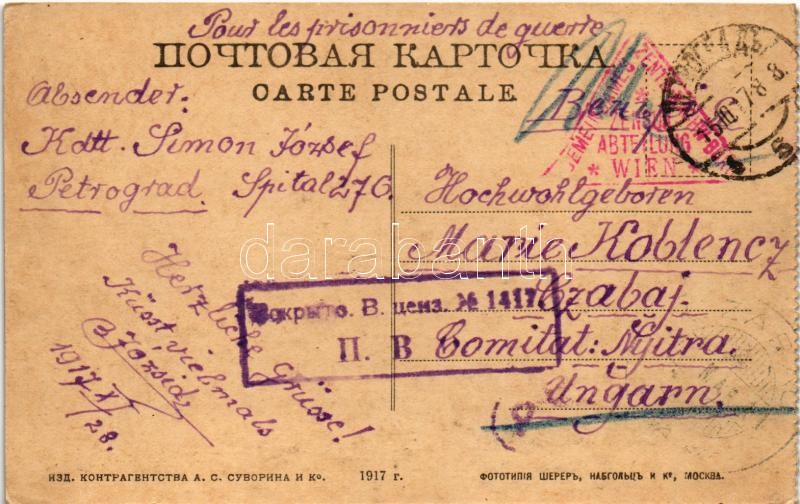 Pour les prisonniers de guerre
ПОЧТОВАЯ КАРТОЧКА
CARTE POSTALE
Absender:
Kdtt. Simon József
Petrograd. Spital 276.
ABTEILUNG
* WIEN *
Hochwohlgeboren
Marie Koblencz
Czabaj.
Comitat: Nyitra.
Ungarn.
Вскрыто. В. ценз. № 1417
П. В
Herzliche Grüsse!
Küsst vielmals
Józsid
1917 XI/28.
darabanth
ИЗД. КОНТРАГЕНТСТВА А. С. СУВОРИНА И Ко.
1917 г.
ФОТОТИПІЯ ШЕРЕРЪ, НАБГОЛЬЦЪ И Ко, МОСКВА.